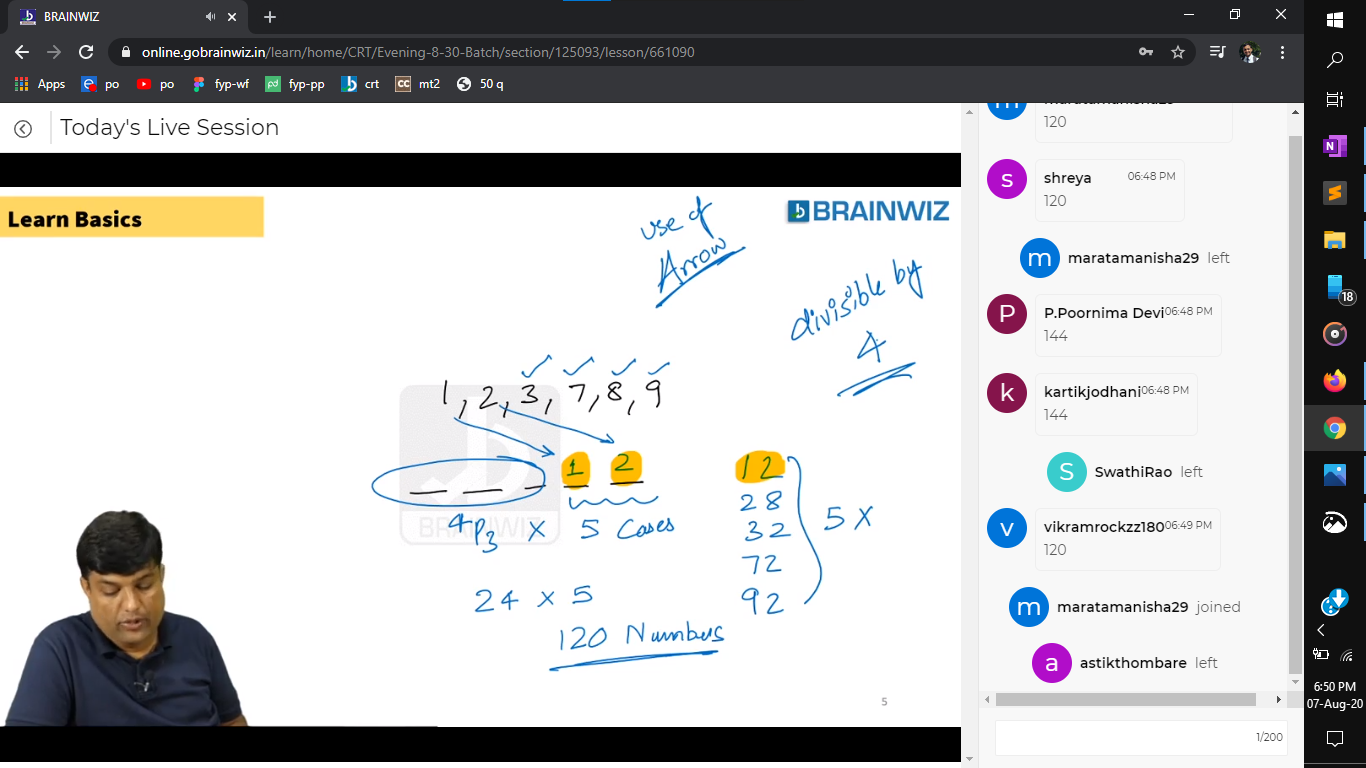 BRAINWIZ
online.gobrainwiz.in/learn/home/CRT/Evening-8-30-Batch/section/125093/lesson/661090
Apps po po fyp-wf fyp-pp crt mt2 50 q
Today's Live Session
Learn Basics
BRAINWIZ
use of
Arrow
divisible by
4
1, 2, 3, 7, 8, 9
1 2
4P3 X 5 Cases
24 x 5
120 Numbers
12
28
32
72
92
5 X
BRAINWIZ
5
maratamanisha29
120
s
shreya 06:48 PM
120
m maratamanisha29 left
P
P.Poornima Devi 06:48 PM
144
k
kartikjodhani 06:48 PM
144
S SwathiRao left
v
vikramrockzz180 06:49 PM
120
m maratamanisha29 joined
a astikthombare left
1/200
18
6:50 PM
07-Aug-20